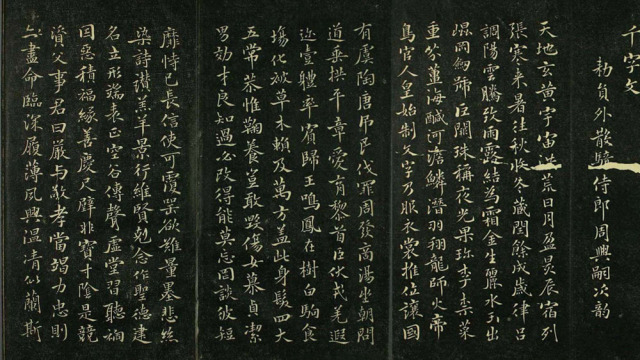 千字文
勅員外散騎侍郎周興嗣次韵
天地玄黃宇宙洪荒日月盈昃辰宿列
張寒来暑往秋收冬藏閏餘成歲律呂
調陽雲騰致雨露結為霜金生麗水玉出
崐岡劒號巨闕珠稱夜光果珎李柰菜
重芥薑海鹹河淡鱗潛羽翔龍師火帝
鳥官人皇始制文字乃服衣裳推位讓國
有虞陶唐弔民伐罪周發商湯坐朝問
道垂拱平章愛育黎首臣伏戎羌遐
迩壹體率賓歸王鳴鳳在樹白駒食
場化被草木賴及萬方盖此身髮四大
五常恭惟鞠養豈敢毀傷女慕貞潔
男効才良知過必改得能莫忘罔談彼短
靡恃己長信使可覆器欲難量墨悲絲
染詩讚羔羊景行維賢剋念作聖德建
名立形端表正空谷傳聲虛堂習聽禍
因惡積福緣善慶尺璧非寶寸陰是競
資父事君曰嚴與敬孝當竭力忠則
盡命臨深履薄夙興溫凊似蘭斯